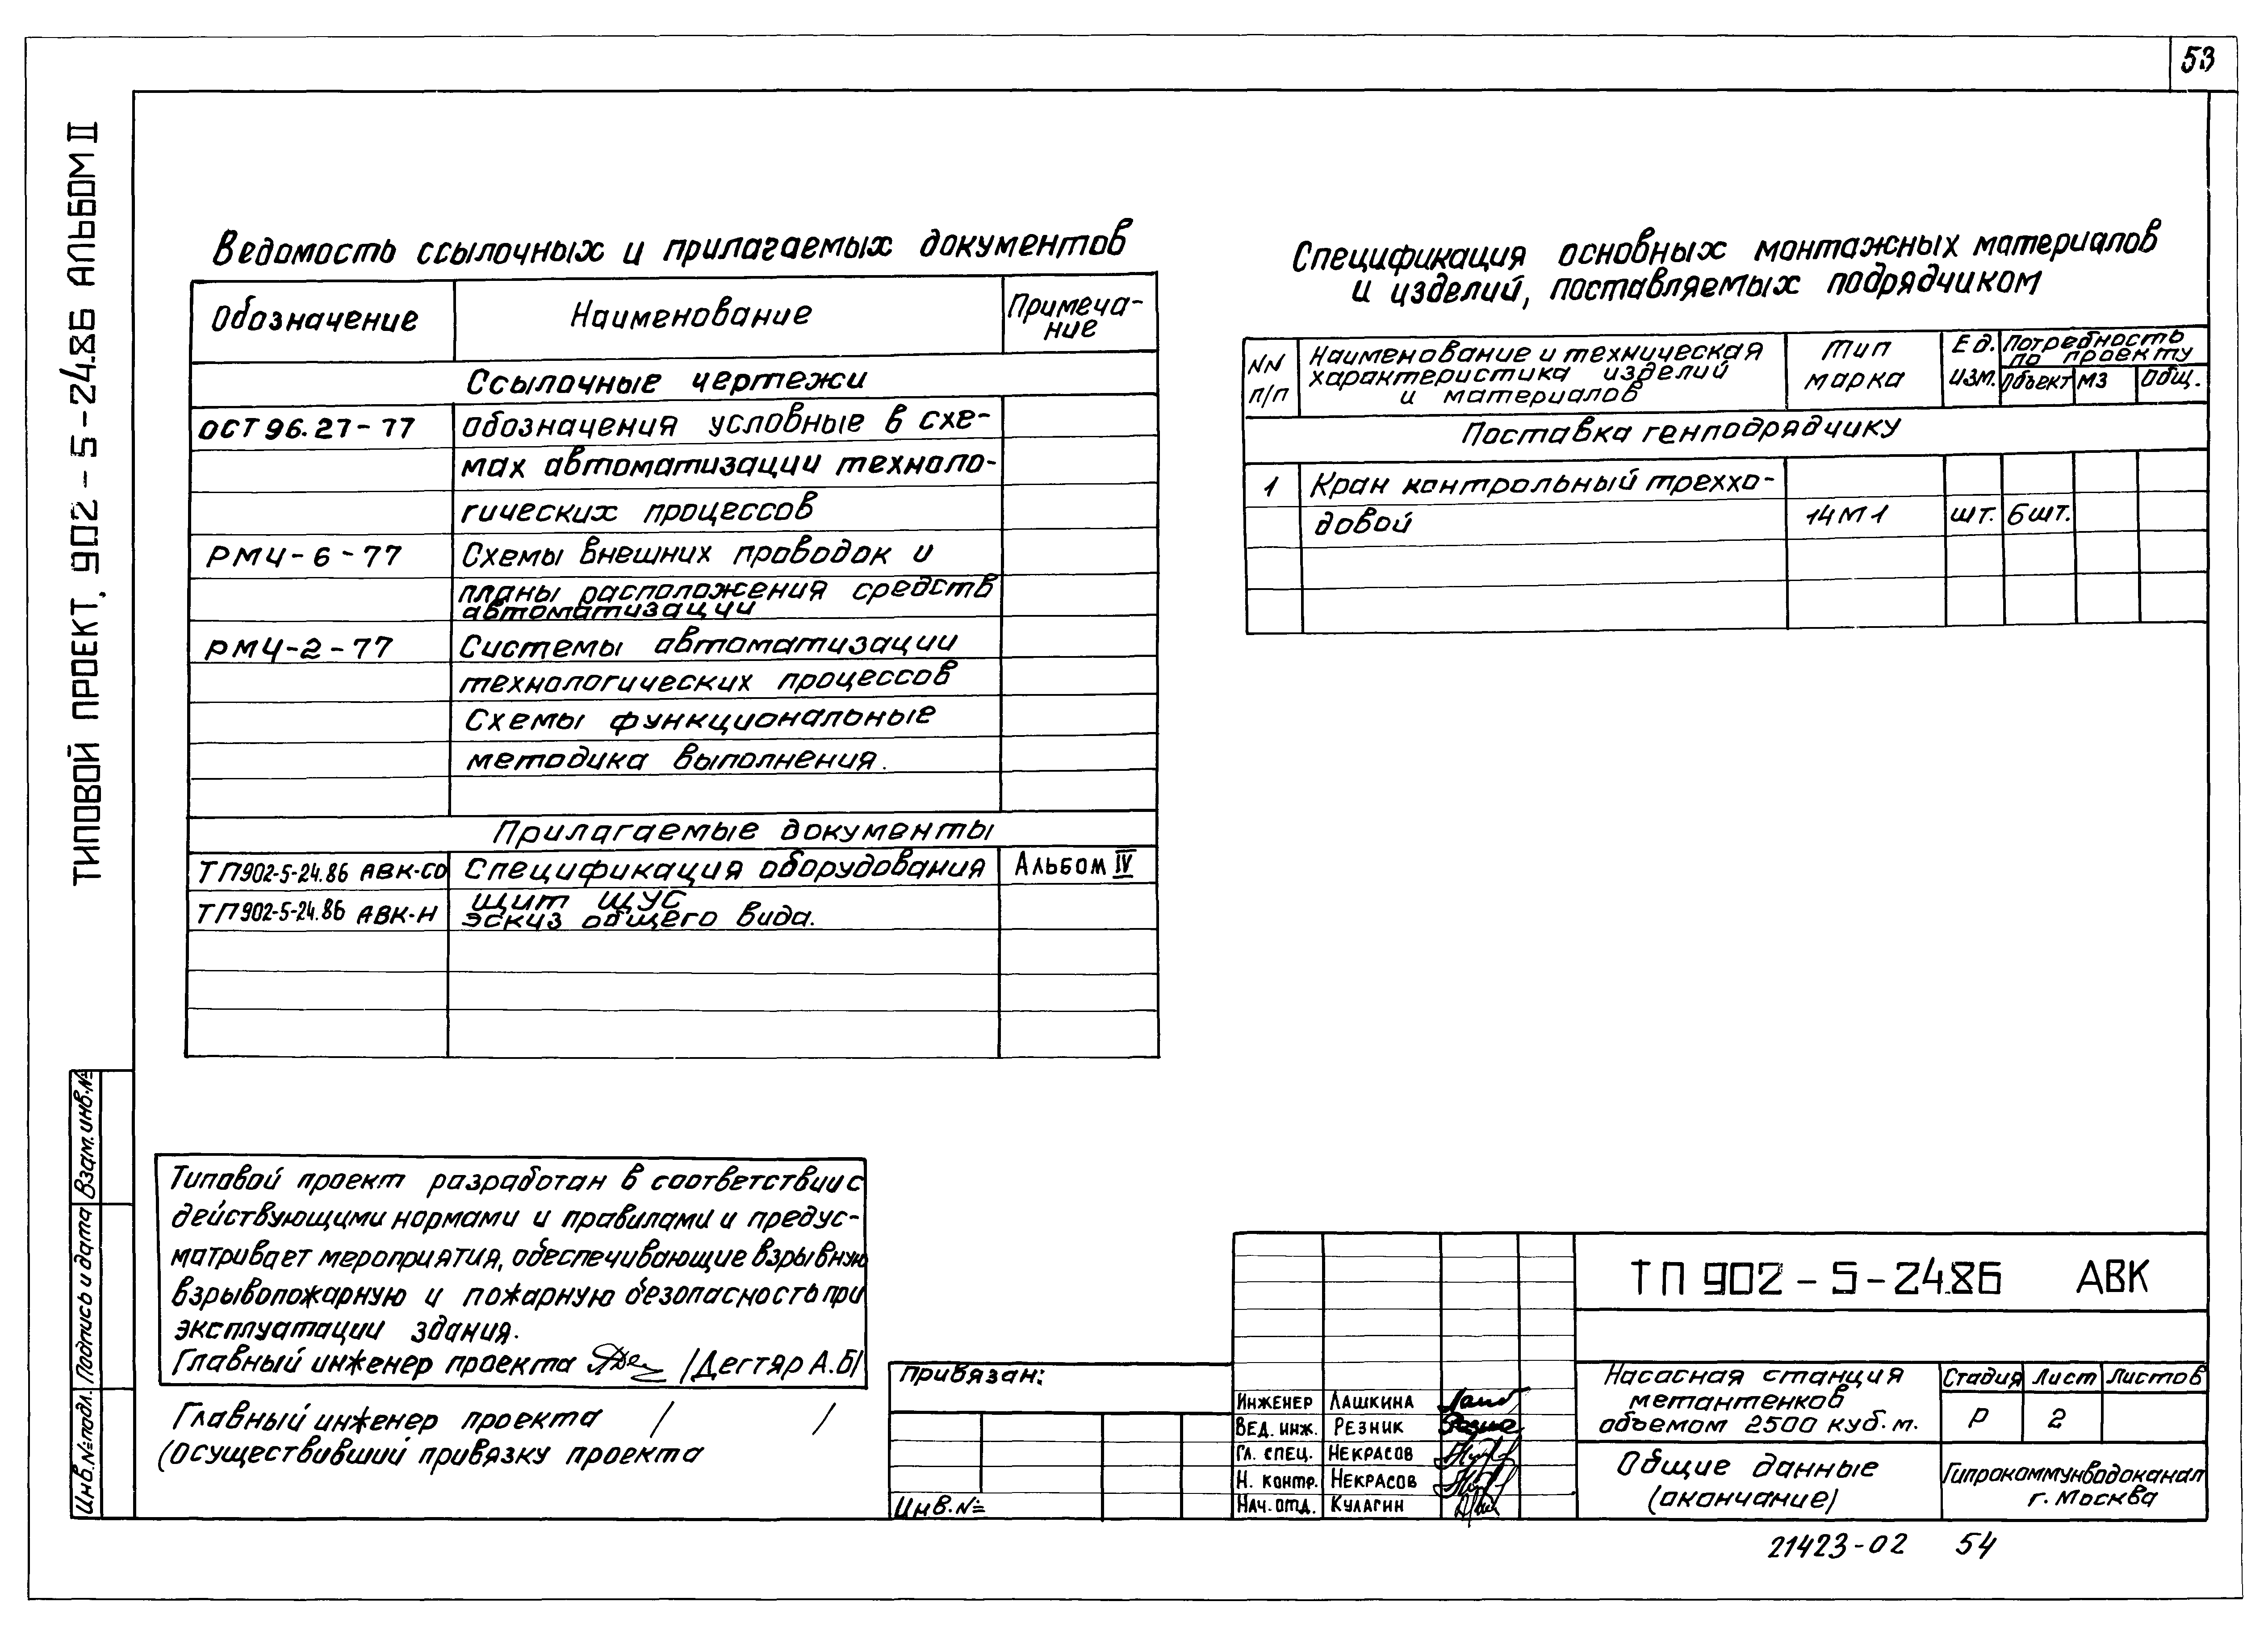 53
ТИПОВОЙ ПРОЕКТ, 902-5-24.86 АЛЬБОМ II
Ведомость ссылочных и прилагаемых документов
Обозначение Наименование Примеча-
ние
Ссылочные чертежи
ОСТ 96.27-77 обозначения условные в схе-
мах автоматизации техноло-
гических процессов
РМ4-6-77 Схемы внешних проводок и
планы расположения средств
автоматизации
РМ4-2-77 Системы автоматизации
технологических процессов
Схемы функциональные
методика выполнения.
Прилагаемые документы
ТП902-5-24.86 АВК-СО Спецификация оборудования Альбом IV
щит ЩУС
ТП902-5-24.86 АВК-Н эскиз общего вида.
Спецификация основных монтажных материалов
и изделий, поставляемых подрядчиком
NN
п/п
Наименование и техническая
характеристика изделий
и материалов
Тип
марка
Ед.
изм.
Потребность
по проекту
Объект МЗ Общ.
Поставка генподрядчику
1 Кран контрольный треххо-
довой 14М1 шт. 6шт.
Типовой проект разработан в соответствии с
действующими нормами и правилами и предус-
матривает мероприятия, обеспечивающие взрывную
взрывопожарную и пожарную безопасность при
эксплуатации здания.
Главный инженер проекта /Дегтяр А.Б/
Главный инженер проекта / /
(осуществивший привязку проекта
Взам. инв.№
Подпись и дата
Инв.№подл.
Привязан:
Инв.№
Инженер Лашкина
Вед. инж. Резник
Гл. спец. Некрасов
Н. контр. Некрасов
Нач. отд. Кулагин
ТП 902-5-24.86 АВК
Насасная станция
метантенков
объемом 2500 куб.м.
Стадия Лист Листов
Р 2
Общие данные
(окончание)
Гипрокоммунводоканал
г. Москва
21423-02 54